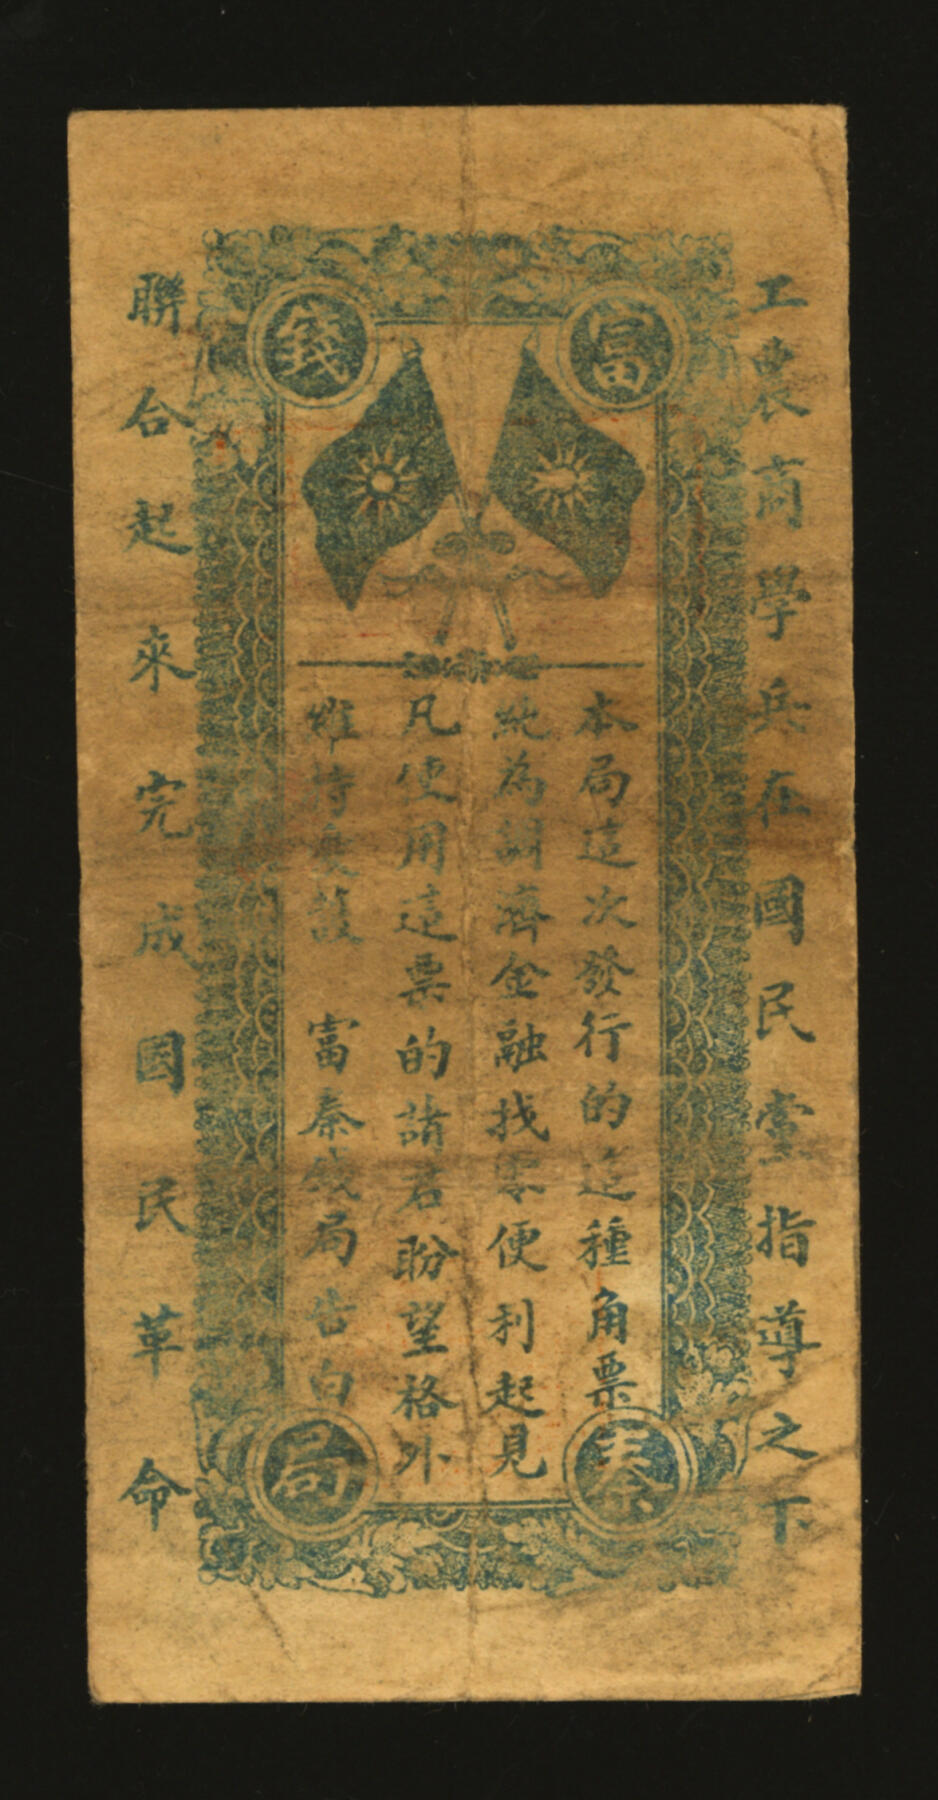 工農商學兵在國民黨指導之下
聯合起來完成國民革命
富秦錢局
本局這次發行的這種角票
純為調濟金融找零便利起見
凡使用這票的請君盼望格外
維持愛護 富秦錢局告白